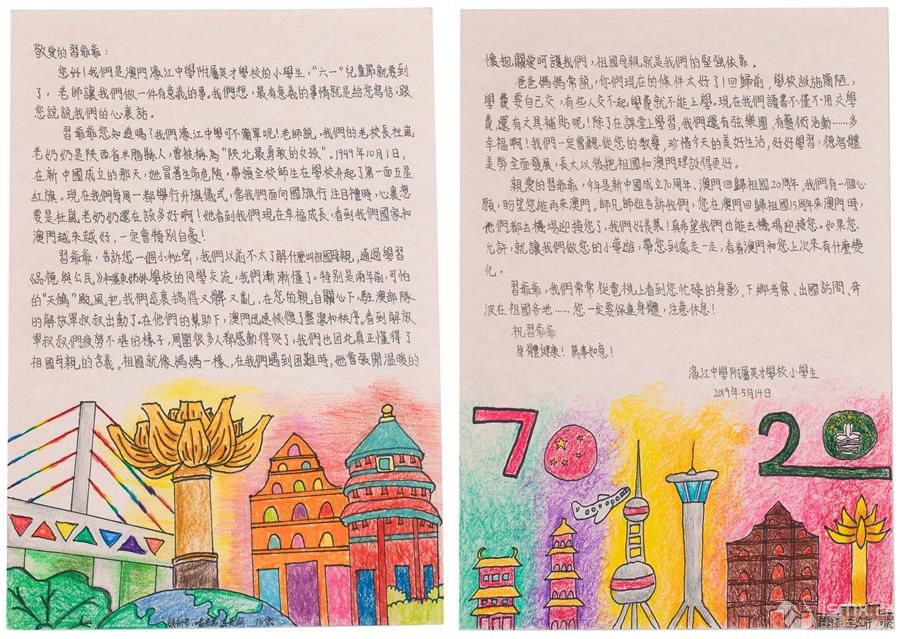 敬愛的習爺爺：
您好！我們是澳門濠江中學附屬英才學校的小學生，“六一”兒童節就要到
了，老師讓我們做一件有意義的事。我們想，最有意義的事情就是給您寫信，跟
您說說我們的心裏話。
習爺爺您知道嗎！我們濠江中學可不簡單呢！老師說，我們的老校長杜嵐
老奶奶是陝西省米脂縣人，曾被稱為“陝北最勇敢的女孩”。1949年10月1日，
在新中國成立的那天，她冒著生命危險，帶領全校師生在學校升起了第一面五星
紅旗。現在我們每周一都舉行升旗儀式，當我們面向國旗行注目禮時，心裏想
要是杜嵐老奶奶還在該多好啊！她看到我們現在幸福成長，看到我們國家和
澳門越來越好，一定會特別自豪！
習爺爺，告訴您一個小秘密，我們以前不太了解什麼叫祖國母親，通過學習
《品德與公民》和 學校的同學交流，我們漸漸懂了。特別是兩年前，可怕
的“天鴿”颱風把我們這裏搞得又髒又亂，在您的親自關心下，駐澳部隊
的解放軍叔叔出動了。在他們的幫助下，澳門迅速恢復了整潔和秩序。看到解放
軍叔叔們疲勞不堪的樣子，周圍很多人都感動得哭了，我們也因此真正懂得了
祖國母親的含義。祖國就像媽媽一樣，在我們遇到困難時，她會張開溫暖的
10歲
懷抱關愛呵護我們，祖國母親就是我們的堅強依靠。
爸爸媽媽常說，你們現在的條件太好了！回歸前，學校設施簡陋，
學費要自己交，有些人交不起學費就不能上學。現在我們讀書不僅不用交學
費還有文具補貼呢！除了在課堂上學習，我們還有弦樂團，有藝術活動……多
幸福啊！我們一定會聽從您的教導，珍惜今天的美好生活，好好學習，德智體
美勞全面發展，長大以後把祖國和澳門建設得更好。
親愛的習爺爺，今年是新中國成立70周年、澳門回歸祖國20周年，我們有一個心
願，盼望您能再來澳門。師兄師姐告訴我們，您在澳門回歸祖國15周年來澳門時，
他們都去機場迎接您了，我們好羨慕！真希望我們也能去機場迎接您。如果您
允許，就讓我們做您的小導遊，帶您到處走一走，看看澳門和您上次來有什麼變
化。
習爺爺，我們常常從電視上看到您忙碌的身影，下鄉考察、出國訪問、奔
波在祖國各地……您一定要保重身體，注意休息！
祝習爺爺
身體健康！萬事如意！
濠江中學附屬英才學校小學生
2019年5月14日
70
20